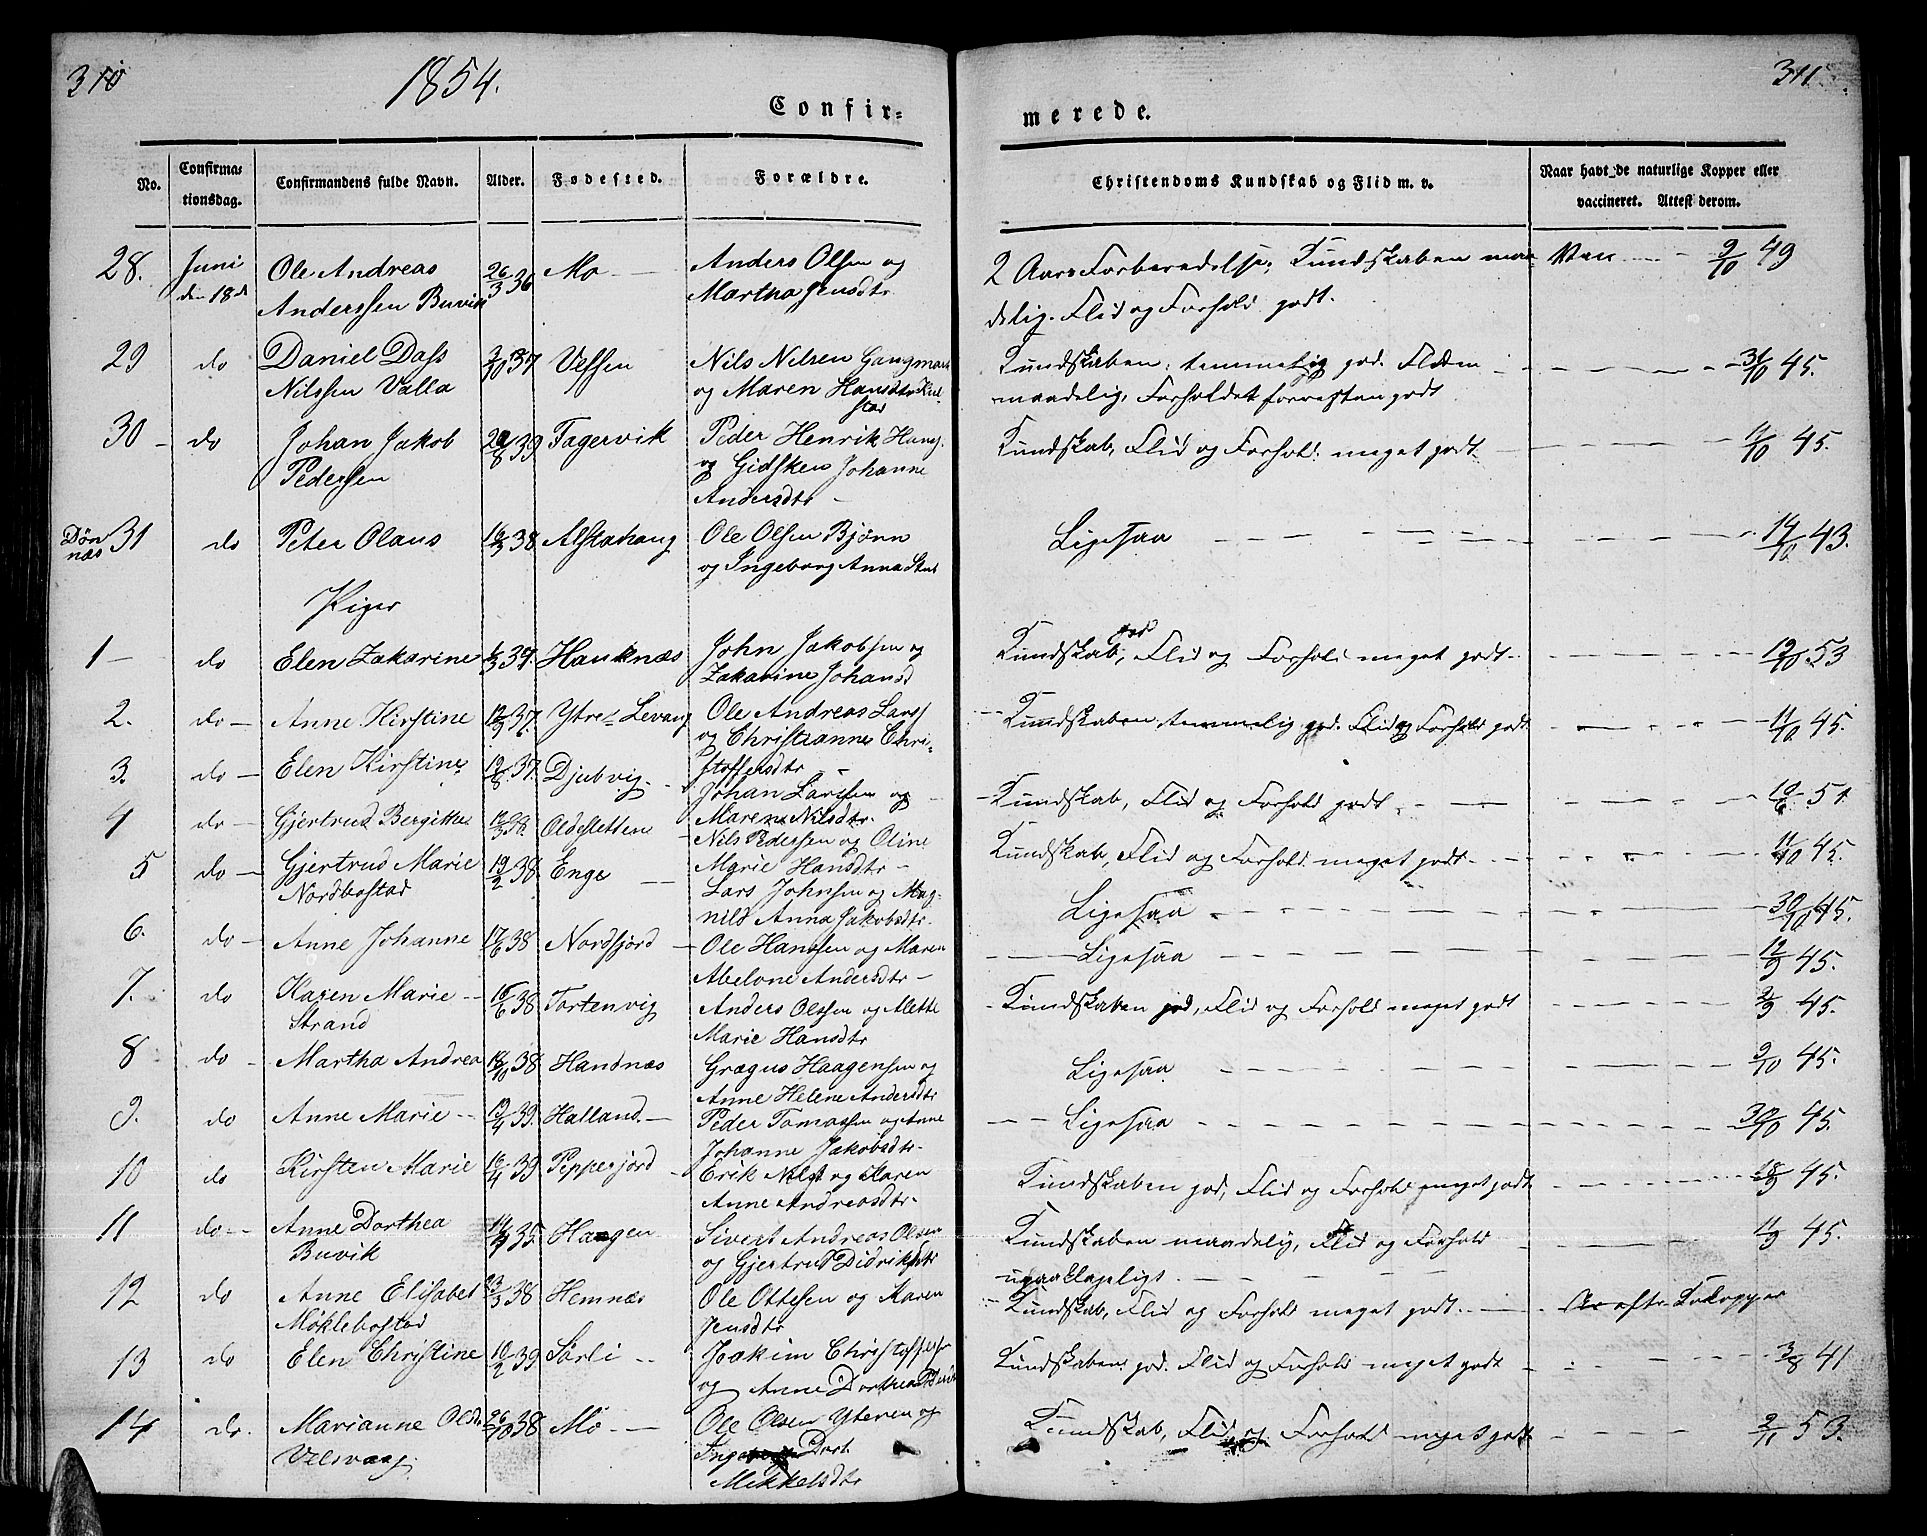 310
1854.
Confir=
No.
Confirma=
tionsdag.
Confirmandens fulde Navn.
Alder.
Fødested.
Forældre.
28.
Juni
den 18de
Ole Andreas
Anderssen Buvik
26/3 36
Mo
Anders Olsen og
Martha Jensdtr
29
do
Daniel Dass
Nilssen Valla
37
Vefsen
Nils Nilsen
og Maren Hansdtr
30
do
Johan Jakob
Pedersen
39
Fagervik
Peder Henrik Hans.
og Gidsken Johanne
Andersdtr
Dön
næs
31
do
Peter Olaus
16/3 38
Alstahaug
Ole Olsen Bjönn
og Ingeborg Anna
Piger
1
do
Elen Zakarine
39.
Hauknæs
John Jakobsen og
Zakarine Johansd
2.
do
Anne Kirstine
37.
Ytre Levang
Ole Andreas Larss
og Christianne Chri=
stoffersdtr
3.
do
Elen Kirstine
19/8 37.
Djubvig
Johan Larssen og
Maren Nilsdtr.
4
do
Gjertrud Bergitte
38.
Oldesletten
Nils Pedersen og Oline
Marie Hansdtr
5
do
Gjertrud Marie
Nordbostad
19/2 38.
Enge
Lars Johnsen og Mag=
nild Anna Jakobsdtr.
6.
do
Anne Johanne
17/6 38
Nordfjord
Ole Hanssen og Maren
Abelone Andersdtr
7.
do
Karen Marie
Strand
16/6 38
Tortenvig
Anders Olssen og Alette
Marie Hansdtr
8
do
Martha Andrea
18/10 38.
Handnæs
Grægus Haagensen og
Anne Helene Andersdtr
9.
do
Anne Marie
19/4 39.
Halland
Peder Tomassen og Anne
Johanne Jakobsdtr
10
do
Kirsten Marie
16/4 39.
Pepperjord
Erik Nilss og Karen
Anne Andreasdtr
11
do
Anne Dorthea
Buvik
35.
Haugen
Sivert Andreas Olsen
og Gjertrud Didriksdtr
12
do
Anne Elisabet
Möklebostad
23/3 38
Hemnæs
Ole Ottesen og Karen
Jensdtr
13
do
Elen Christine
10/2 39
Sörli
Joakim Christoffersr
og Anne Dorthea Pedsdt
14
do.
Marianne Olsdtr
Velsvaag.
26/10 38
Mo
Ole Olsen Yteren og
Dort.
Mikkelsdtr
311
merede.
Christendoms Kundskab og Flid m. v.
Naar havt de naturlige Kopper eller
vaccineret. Attest derom.
2 Aars Forberedelse; Kundskaben maa
delig. Flid og Forhold godt.
Vac
9/10 49
Kundskaben temmelig god. Flidn
maadelig, Forholdet forresten godt
31/10 45.
Kundskab, Flid og Forhold meget godt
45.
Ligesaa
14/10 43.
god
Kundskab, Flid og Forhold meget godt
19/10 53
Kundskaben temmelig god. Flid og Forhold godt
11/10 45.
Kundskab, Flid og Forhold godt
10/6 51
Kundskab, Flid og Forhold meget godt
11/10 45.
Ligesaa
30/10 45.
Ligesaa
12/9 45.
Kundskaben god, Flid og Forhold meget godt
2/9 45.
Ligesaa
9/10 45.
Ligesaa
30/10 45.
Kundskaben god, Flid og Forhold meget godt
18/9 45.
Kundskaben maadelig, Flid og Forhold
upaaklageligt.
11/9 45.
Kundskab, Flid og Forhold meget godt.
Kokopper
Kundskaben god. Flid og Forhold meget godt
3/8 41
Kundskab, Flid og Forhold meget godt
2/11 53.